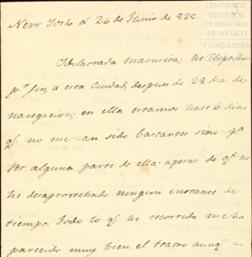 CENTRO DE
ESTUDIOS
DE HISTORIA
DE MEXICO
FUNDACIÓN
New York 24 de Junio de 825
Adorada Maruxita; he llegado
pr. fin á esta Ciudad, despues de 22 dias de
navegacion; en ella estamos hace 6 dias
q. no me han sido bastantes sino pa.
ver alguna parte de ella apesar de q. no
he desaprovechado ningun instante de
tiempo. Todo lo q. he recorrido me ha
parecido muy bien el teatro aunq.